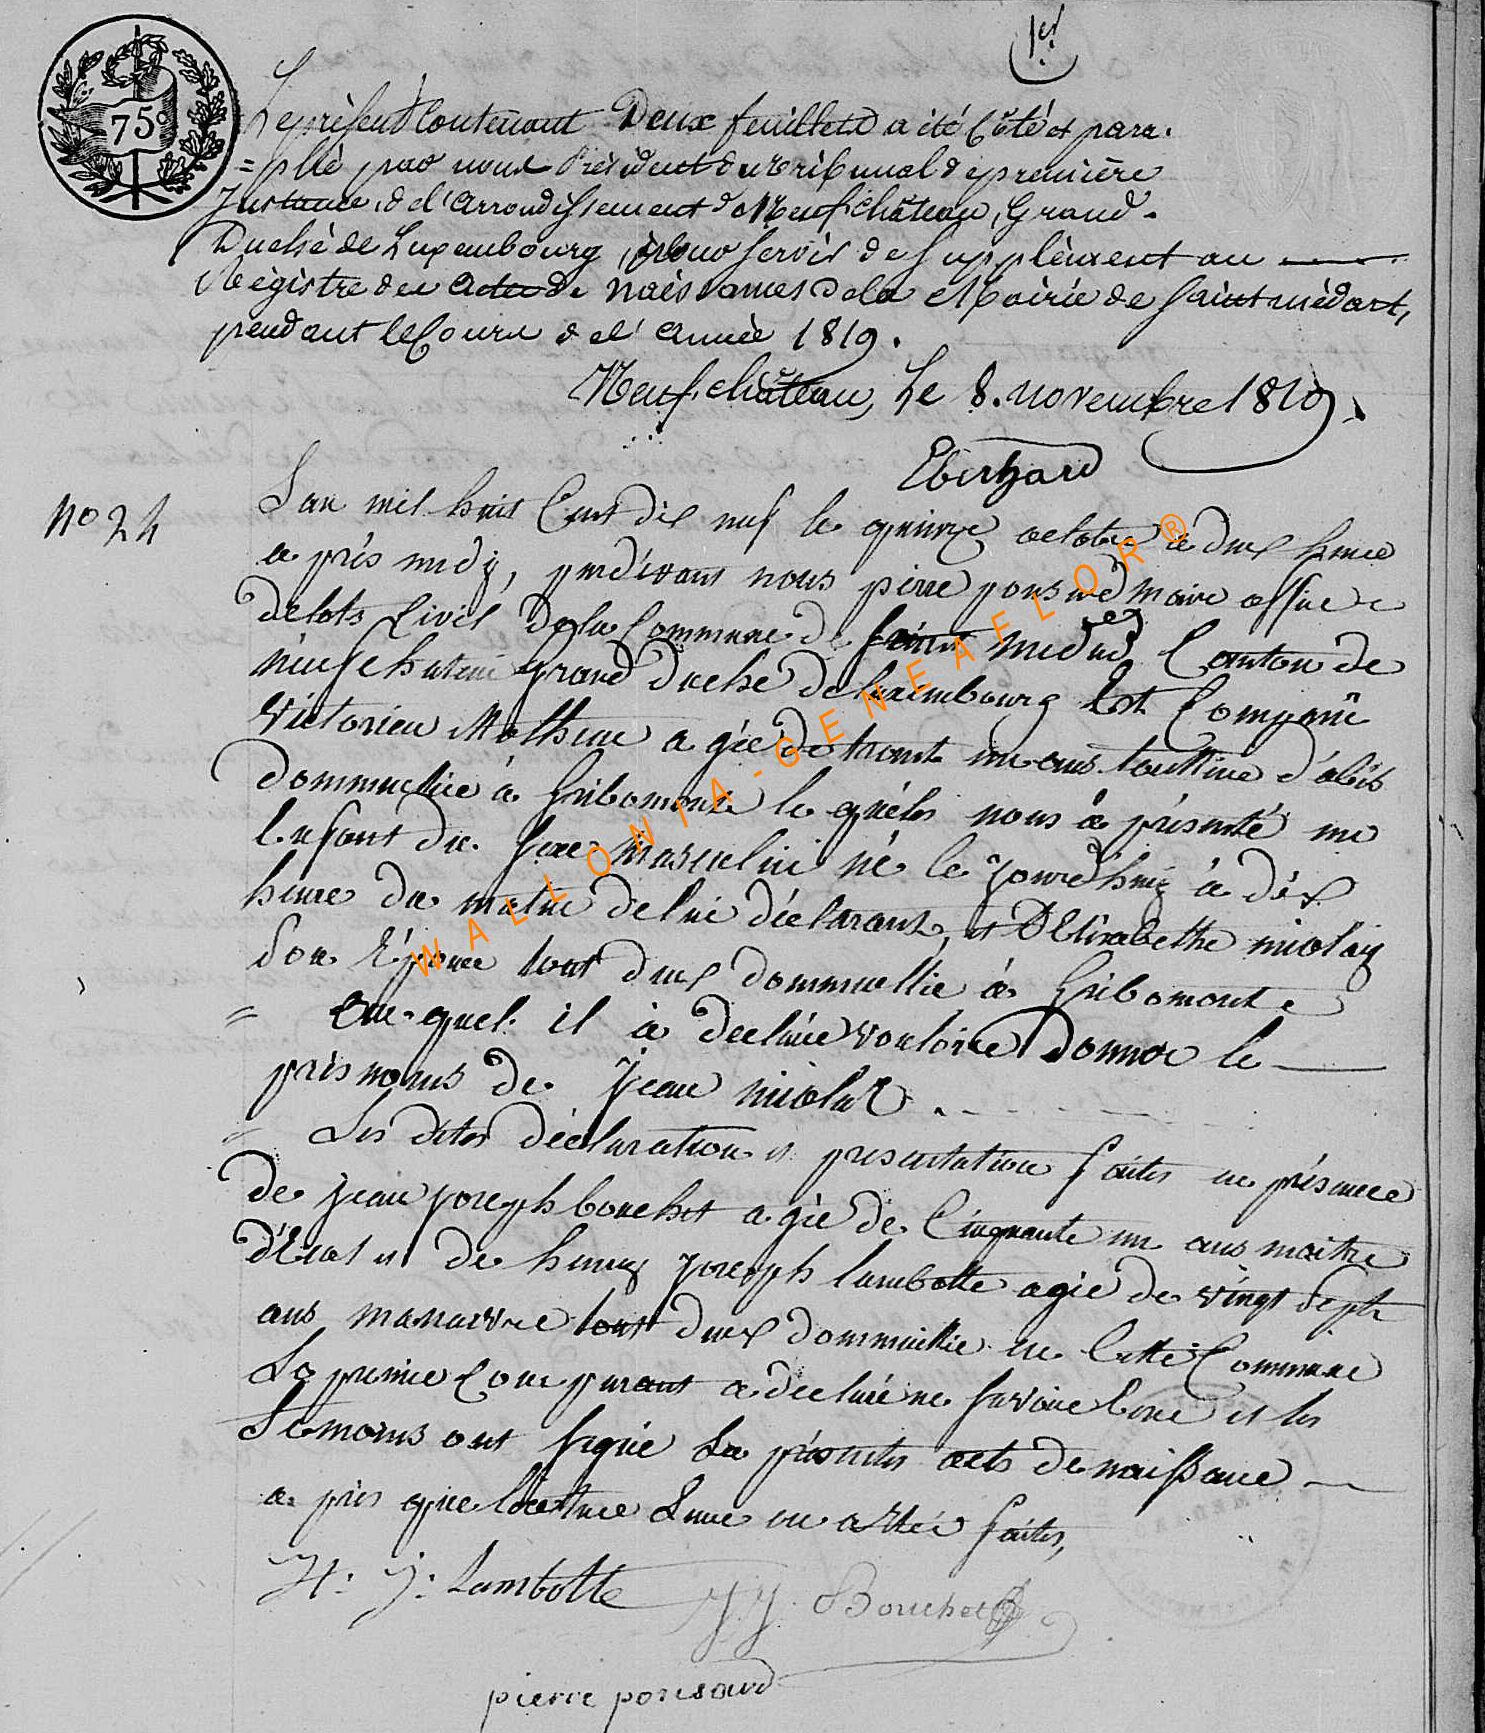 1er
75c
Le présent Contenant Deux feuillets a été Côté et para-
=phé par nous Président du Tribunal de première
Instance, de l'Arrondissement de Neufchâteau, Grand-
Duché de Luxembourg, pour servir de Supplément au
Régistre des actes de Naissances de la Mairie de Saint médart,
pendant le Cours de l'année 1819.
Neufchâteau, Le 8. novembre 1819.
Eberhard
N° 24
L'an mil huit Cent dix neuf le quinze octobre à deux heure
a près midy, pardevant nous pierre ponsard maire officie
delots Civil de la Commune de Saint medard Canton de
neufchateau Grand duche de Luxembourg Est Comparu
Victorien Mathieu a gée de trente un ans
dommicilie à Gribomont le quéles nous à présenté un
Enfant du Sexe Masculin né le jourd'huy à dix
heure du matin de lui déclarant, et D'Elisabethe nicolay
Son Epouse tout deux dommicillie à Gribomont
= Au quel il à declaée vouloire Donner le
prénoms de Jean nicolas.
= Les dites déclaration et presentation faites en présence
de Jean joseph bouchet a gée de Cinquante un ans maitre
d'Ecol et de henry joseph lambotte agée de vingt Sept
ans manauvre tout deux dommicillie en Cette Commune
Le premier Comparant a declaré ne Savoire Ecrire et les
Témoins ont Signé Le présentes acte de naissance
a pris que lecture Leure en a Etée faites,
H: J: Lambotte
J J. Bouchet
pierre ponsard
WALLONIA-GENEAFLOR®